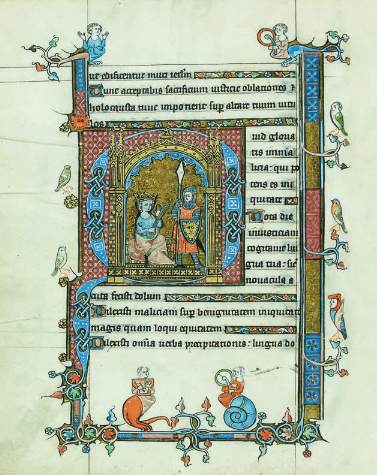 ut edificentur muri ierlm
Tunc acceptabis sacrificium iusticie oblationes &
holocausta tunc imponent sup altare tuum uitu
los
Quid gloria
ris in mali
tia: qui po
tens es in ini
quitate
Tota die
iniusticiam
cogitauit lin
gua tua: sic
nouacula a
cuta fecisti dolum
Dilexisti maliciam sup benignitatem iniquitatem
magis quam loqui equitatem
Dilexisti omnia verba precipitationis: lingua do